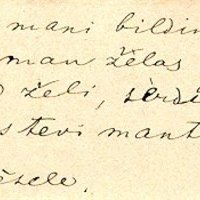 mani bildin
man želas
želi, sērdi
s tevi mant
ēsele.